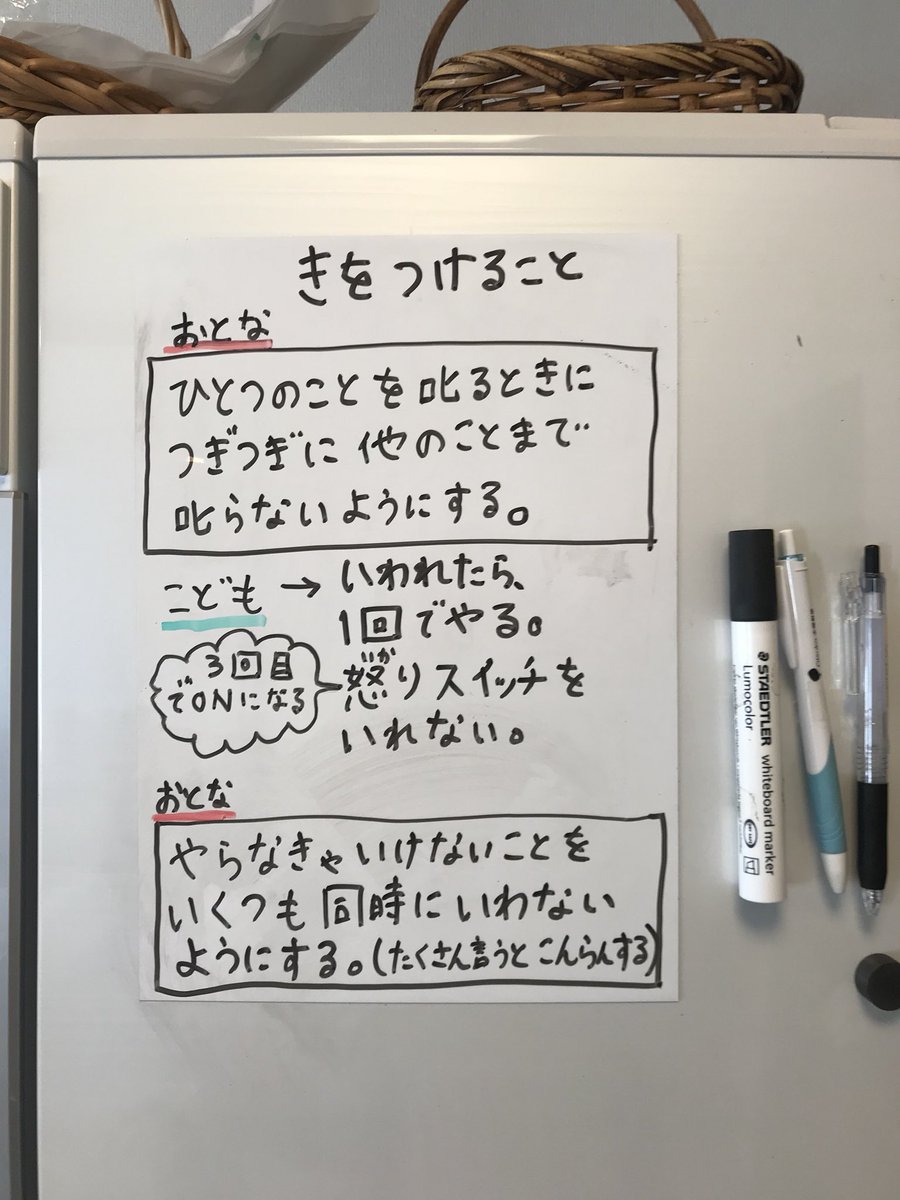 きをつけること
おとな
ひとつのことを叱るときに
つぎつぎに他のことまで
叱らないようにする。
こども → いわれたら、
1回でやる。
怒りスイッチを
いか
いれない。
3回目
でONになる
おとな
やらなきゃいけないことを
いくつも同時にいわない
ようにする。(たくさん言うとこんらんする)
STAEDTLER
Lumocolor
whiteboard marker